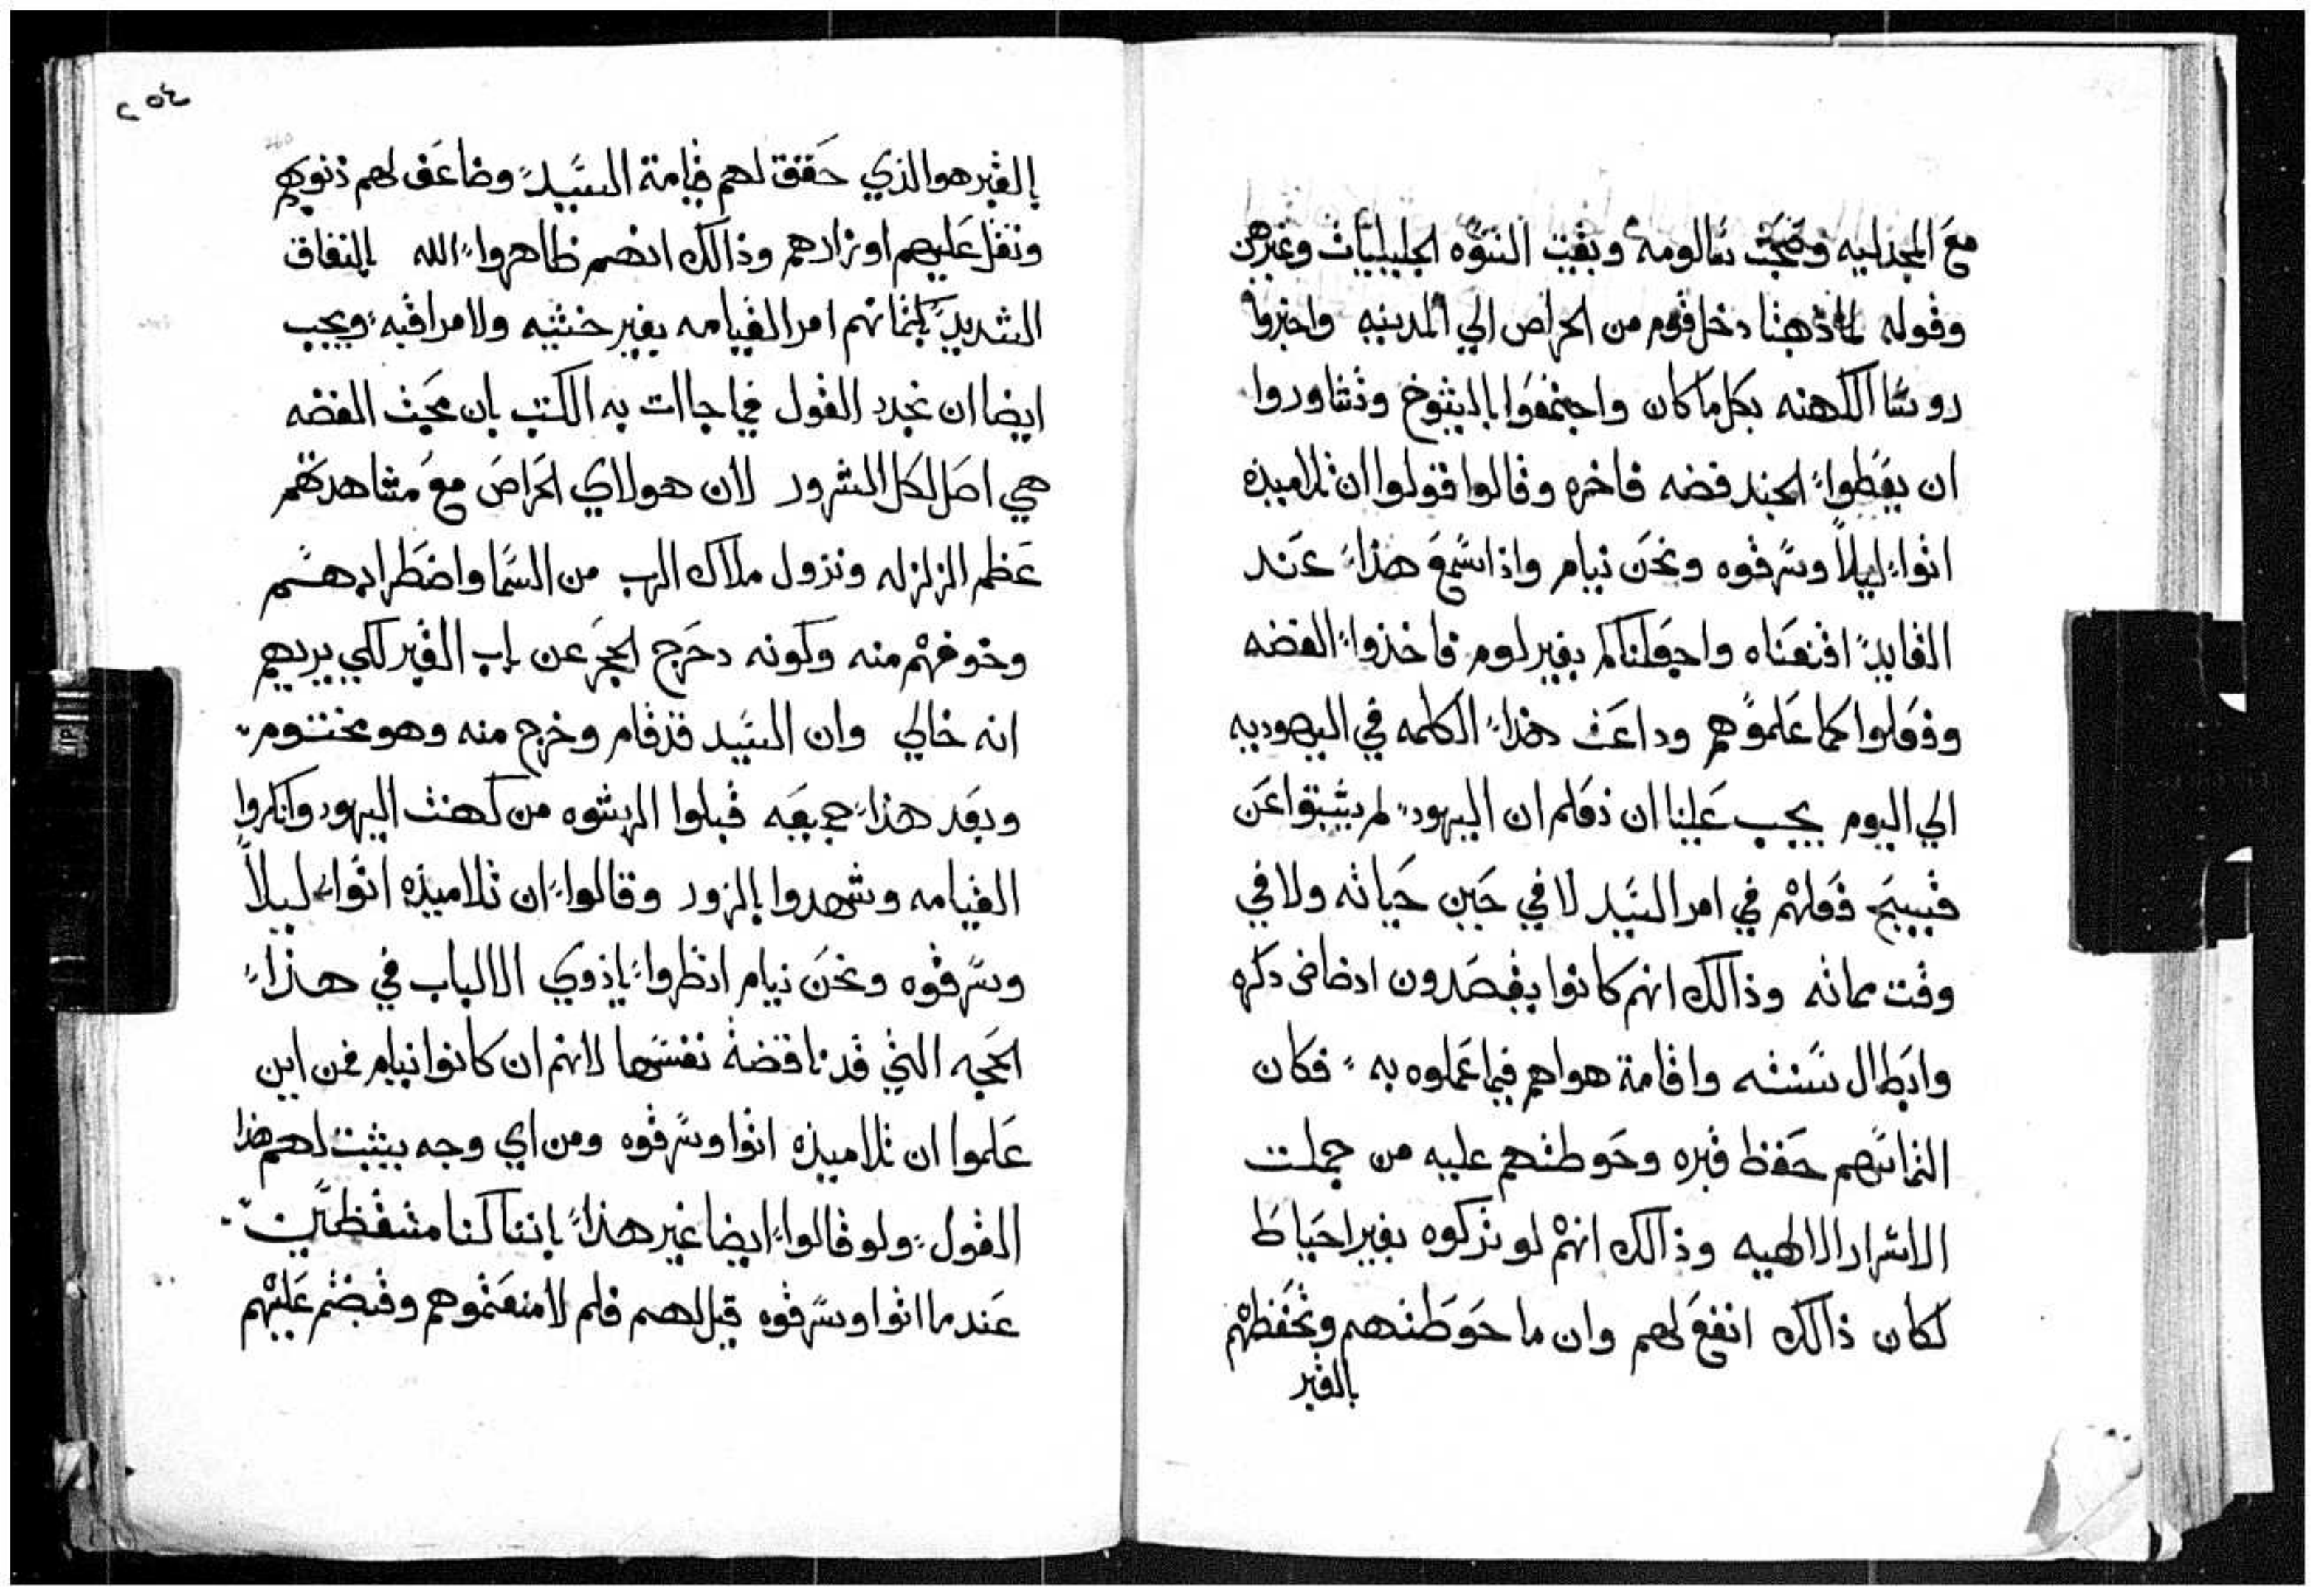 مع المجدليه وصحبت سالومه وبقيت النسوه الجليليات وغيرهن
وقوله لما ذهبنا دخل قوم من الحراص الي المدينه واخبروا
روسا الكهنه بكل ما كان واجتمعوا بالشيوخ وتشاوروا
ان يعطوا الجند فضه فاخره وقالوا قولوا ان تلاميذه
اتوا ليلاً وسرقوه ونحن نيام واذا سمع هذا عند
القايد اقنعناه واجعلناكم بغير لوم فاخذوا الفضه
وفعلوا كما علموهم وداعت هذا الكلمه في اليهوديه
الي اليوم يجب علينا ان نعلم ان اليهود لم يثبتوا عن
قبيح فعلهم في امر السيد لا في حين حياته ولا في
وقت مماته وذالك انهم كانوا يقصدون ادضاض دكره
وابطال سنته واقامة هواهم فيما عملوه به فكان
التماسهم حفظ قبره وحوطتهم عليه من جملت
الاسرار الالهيه وذالك انهم لو تركوه بغير احتياط
لكان ذالك انفع لهم وان ما حوطتهم وتحفظهم
بالقبر
٢٥٤
بالقبر هو الذي حقق لهم قيامة السيد وضاعف لهم ذنوبهم
وثقل عليهم اوزارهم وذالك انهم ظاهروا الله بالنفاق
الشديد بكتمانهم امر القيامه بغير خشيه ولا مراقبه ويجب
ايضا ان نجدد القول فيما جاات به الكتب بان محبت الفضه
هي اصل لكل الشرور لان هولاي الحراص مع مشاهدتهم
عظم الزلزله ونزول ملاك الرب من السما واضطرابهم
وخوفهم منه وكونه دحرج الحجر عن باب القبر لكي يريهم
انه خالي وان السيد قد قام وخرج منه وهو مختوم
وبعد هذا جميعه قبلوا الرشوه من كهنت اليهود وانكروا
القيامه وشهدوا بالزور وقالوا ان تلاميذه اتوا ليلاً
وسرقوه ونحن نيام انظروا ياذوي الالباب في هذا
الحجه التي قد ناقضة نفسها لانهم ان كانوا نيام فمن اين
علموا ان تلاميذه اتوا وسرقوه ومن اي وجه يثبت لهم هذا
القول ولو قالوا ايضا غير هذا باننا كنا متيقظين
عند ما اتوا وسرقوه قيل لهم فلم لا منعتموهم وقبضتم عليهم